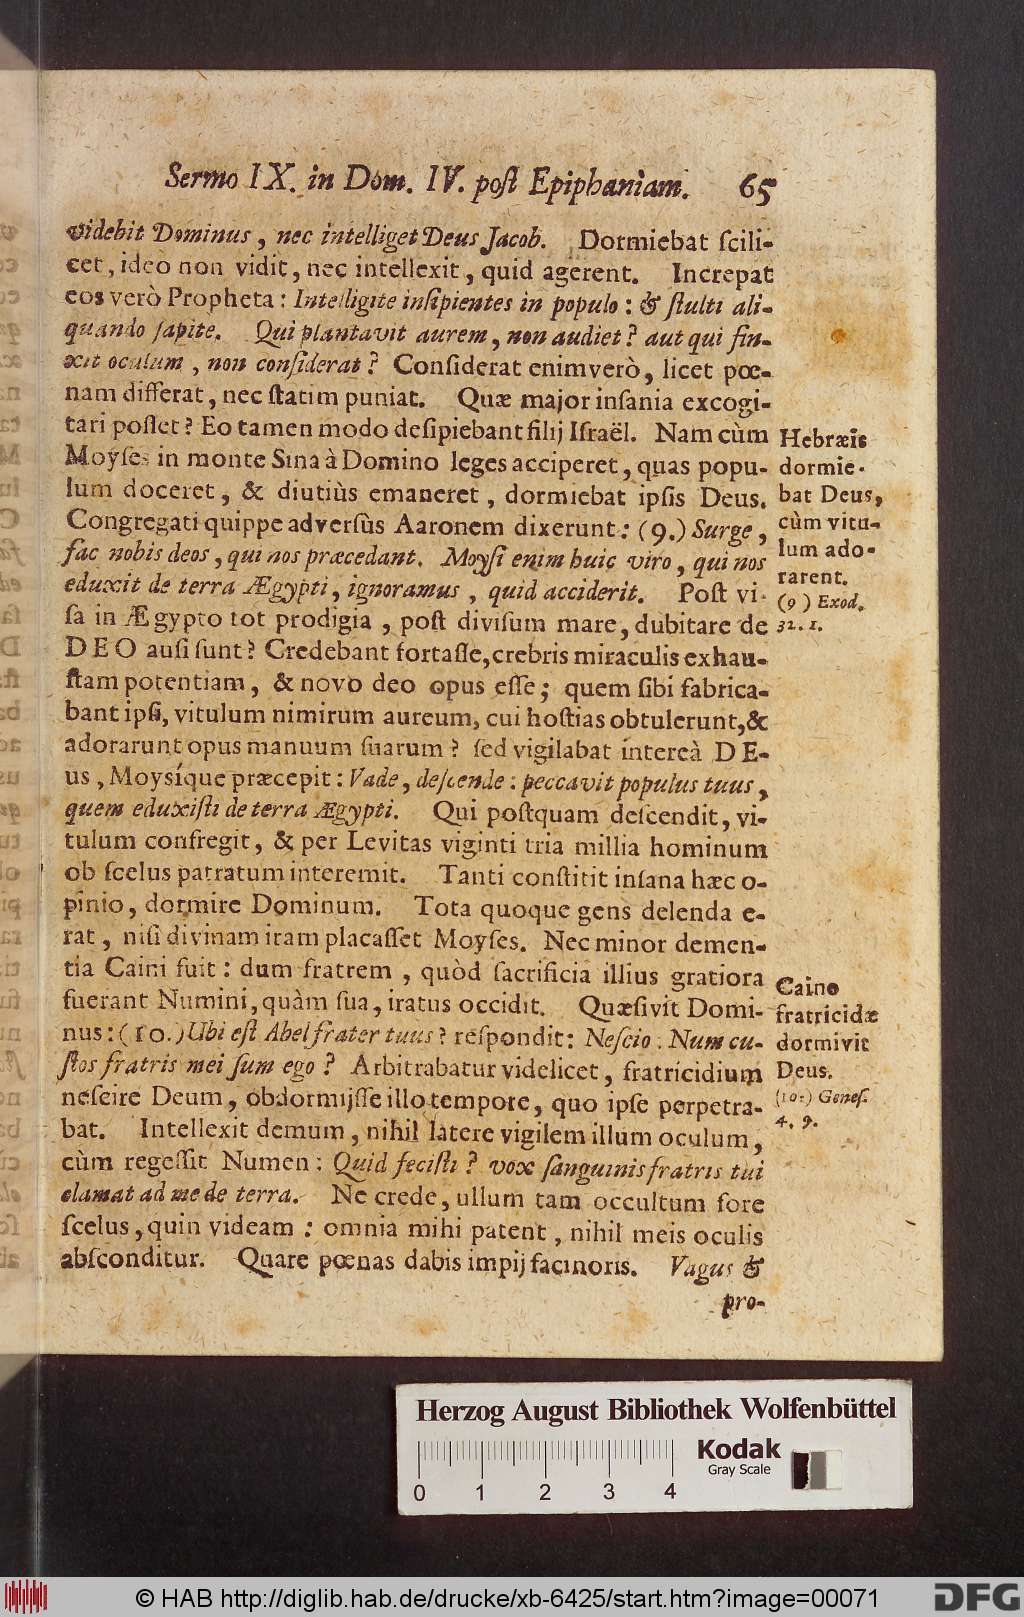 Sermo IX. in Dom. IV. poſt Epiphaniam. 65
videbit Dominus, nec intelliget Deus Jacob. Dormiebat ſcili-
cet, ideo non vidit, nec intellexit, quid agerent. Increpat
eos verò Propheta: Intelligite inſipientes in populo: & ſtulti ali-
quando ſapite. Qui plantavit aurem, non audiet? aut qui fin-
xit oculum, non conſiderat? Conſiderat enimverò, licet pœ-
nam differat, nec ſtatim puniat. Quæ major inſania excogi-
tari poſſet? Eo tamen modo deſipiebant filij Iſraël. Nam cùm
Moyſes in monte Sina à Domino leges acciperet, quas popu-
lum doceret, & diutiùs emaneret, dormiebat ipſis Deus.
Congregati quippe adverſùs Aaronem dixerunt: (9.) Surge,
fac nobis deos, qui nos præcedant. Moyſi enim huic viro, qui nos
eduxit de terra Ægypti, ignoramus, quid acciderit. Poſt vi-
ſa in Ægypto tot prodigia, poſt diviſum mare, dubitare de
DEO auſi ſunt? Credebant fortaſſe, crebris miraculis exhau-
ſtam potentiam, & novo deo opus eſſe; quem ſibi fabrica-
bant ipſi, vitulum nimirum aureum, cui hoſtias obtulerunt, &
adorarunt opus manuum ſuarum? ſed vigilabat intereà DE-
us, Moysíque præcepit: Vade, deſcende: peccavit populus tuus,
quem eduxiſti de terra Ægypti. Qui poſtquam deſcendit, vi-
tulum confregit, & per Levitas viginti tria millia hominum
ob ſcelus patratum interemit. Tanti conſtitit inſana hæc o-
pinio, dormire Dominum. Tota quoque gens delenda e-
rat, niſi divinam iram placaſſet Moyſes. Nec minor demen-
tia Caini fuit: dum fratrem, quòd ſacrificia illius gratiora
fuerant Numini, quàm ſua, iratus occidit. Quæſivit Domi-
nus: (10.) Ubi eſt Abel frater tuus? reſpondit: Neſcio. Num cu-
ſtos fratris mei ſum ego? Arbitrabatur videlicet, fratricidium
neſcire Deum, obdormijſſe illo tempore, quo ipſe perpetra-
bat. Intellexit demum, nihil latere vigilem illum oculum,
cùm regeſſit Numen: Quid feciſti? vox ſanguinis fratris tui
clamat ad me de terra. Ne crede, ullum tam occultum fore
ſcelus, quin videam: omnia mihi patent, nihil meis oculis
abſconditur. Quare pœnas dabis impij facinoris. Vagus &
pro-
Hebræis
dormie-
bat Deus,
cùm vitu-
lum ado-
rarent.
(9) Exod.
32. 1.
Caino
fratricidæ
dormivit
Deus.
(10.) Geneſ.
4. 9.
Herzog August Bibliothek Wolfenbüttel
Kodak
Gray Scale
0 1 2 3 4
© HAB http://diglib.hab.de/drucke/xb-6425/start.htm?image=00071
DFG